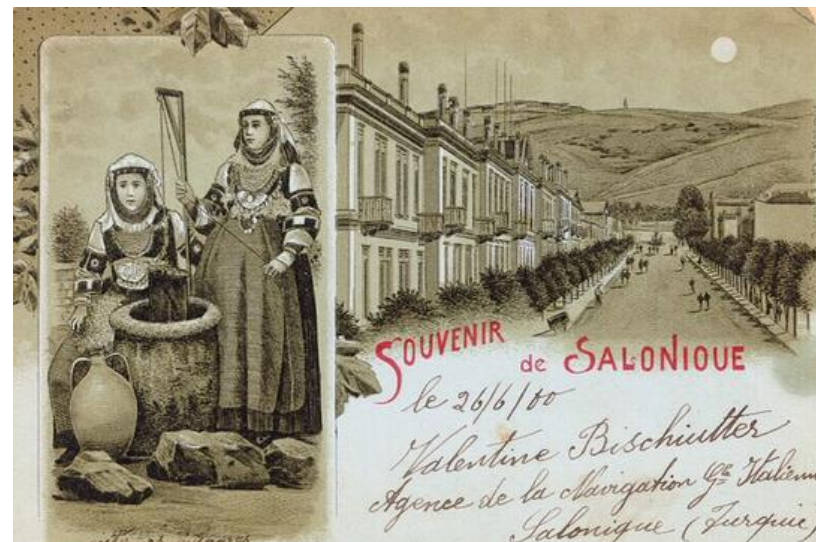 SOUVENIR de SALONIQUE
le 26/6/00
Valentine Bischiutter
Agence de la Navigation Gle Italienn
Salonique (Turquie)